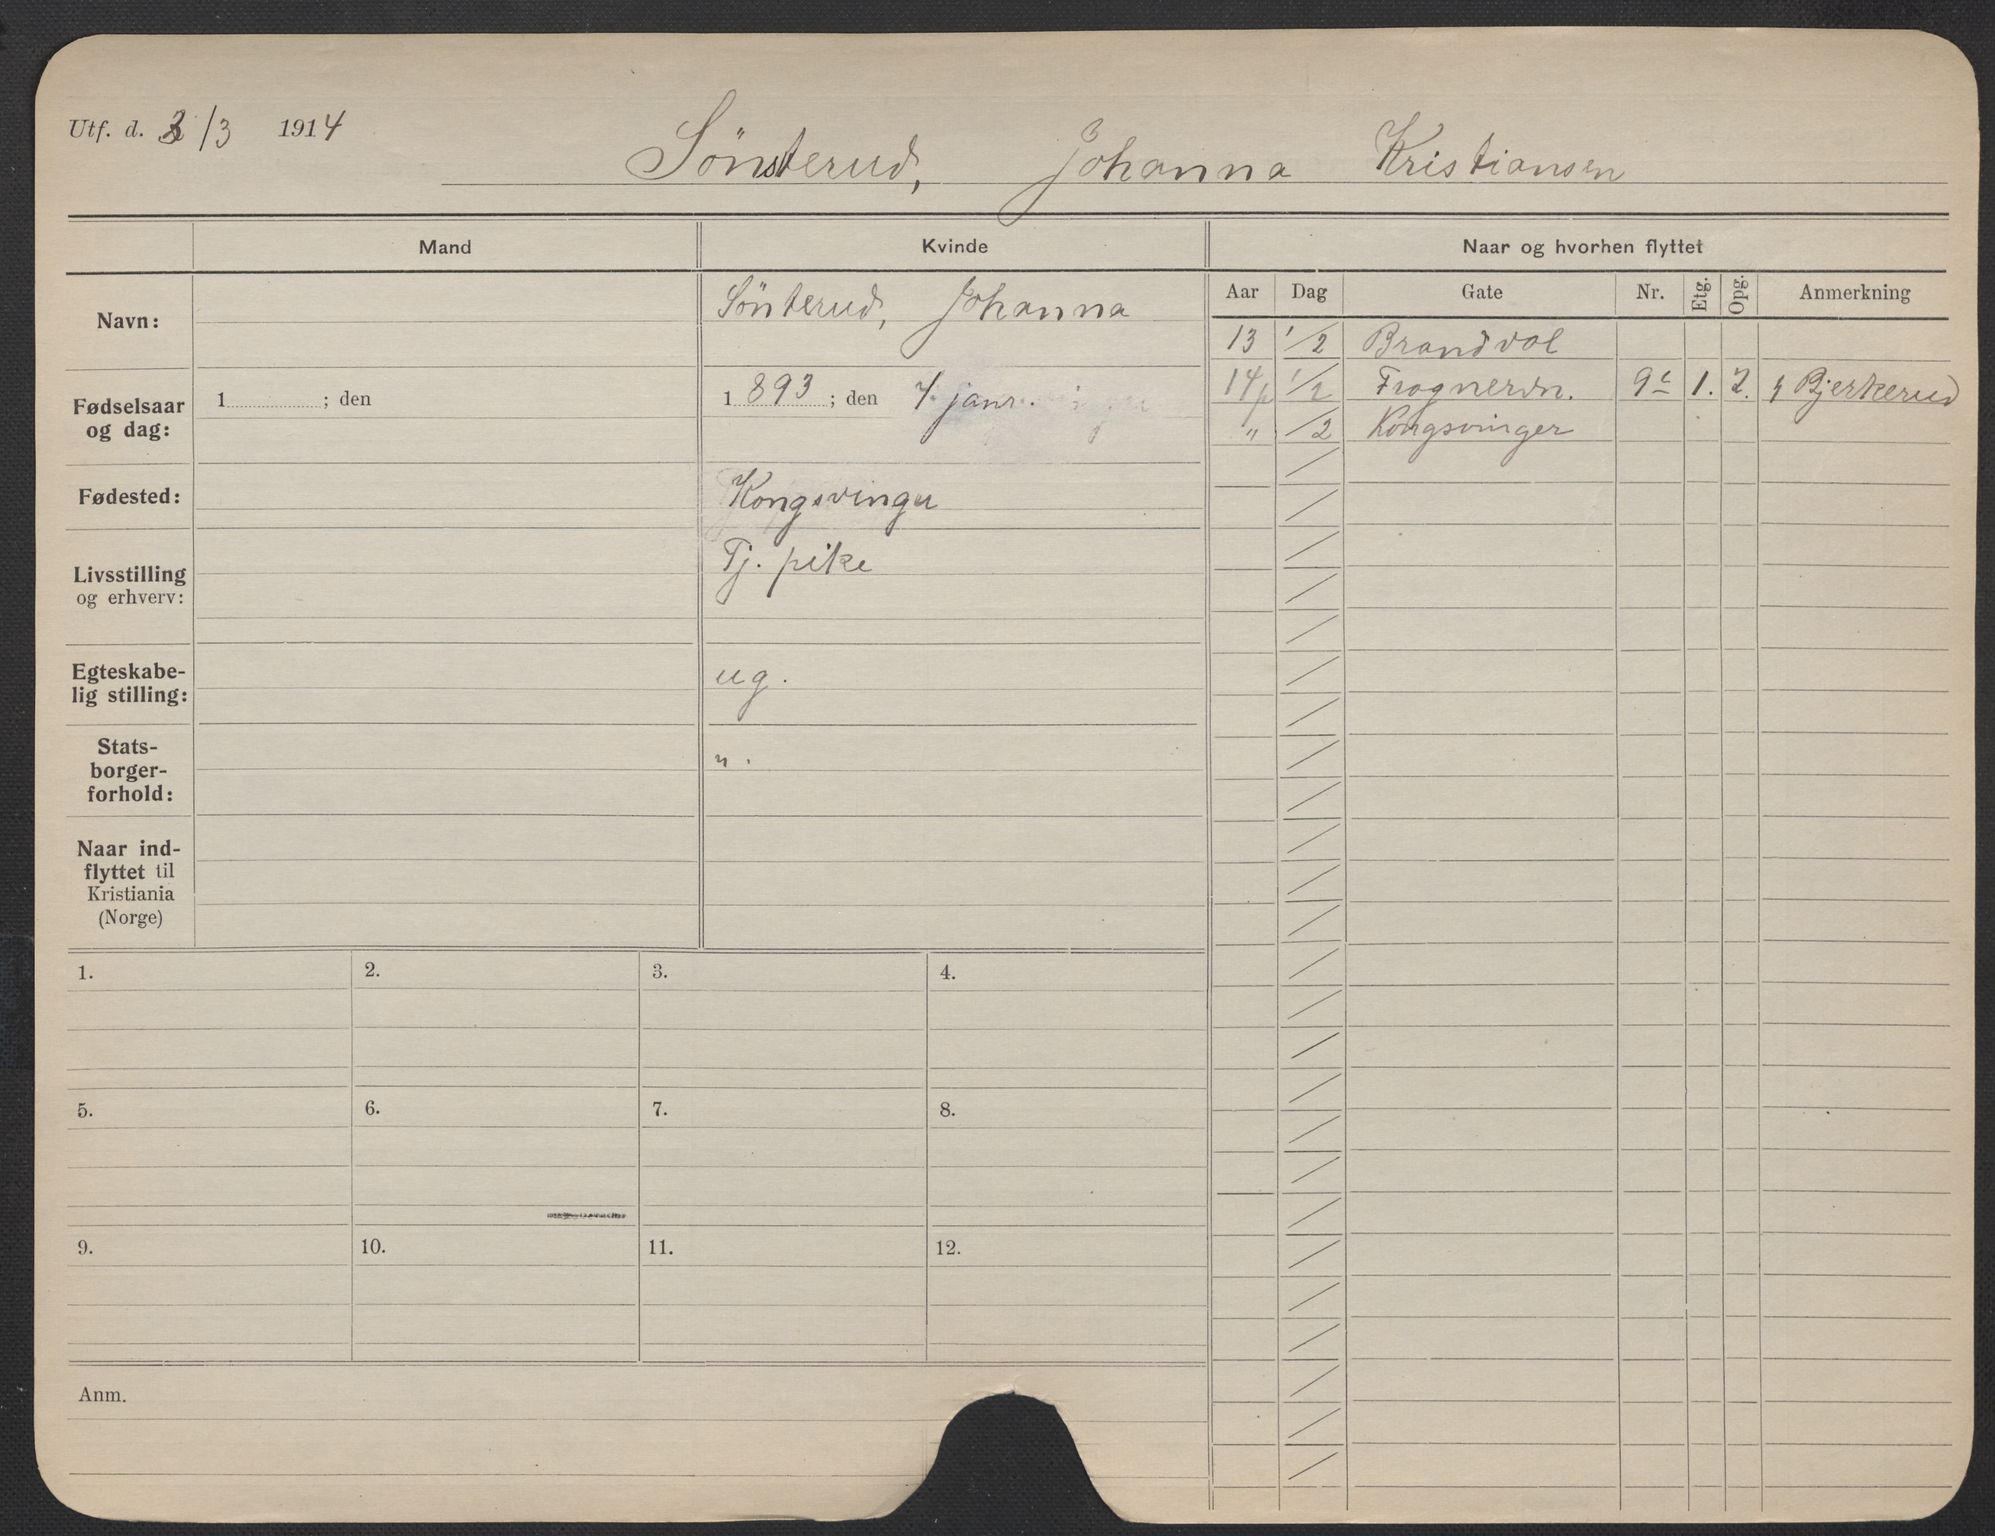 Utf. d. 3/3 1914
Sønsterud, Johanna Kristiansen
Mand
Kvinde
Naar og hvorhen flyttet
Navn:
Sönterud, Johanna
Fødselsaar
og dag:
1 ; den
1893 ; den 4. janr.
Fødested:
Kongsvinger
Livsstilling
og erhverv:
Tj. pike
Egteskabe-
lig stilling:
ug.
Stats-
borger-
forhold:
n.
Naar ind-
flyttet til
Kristiania
(Norge)
Aar Dag Gate Nr. Etg. Opg. Anmerkning
13 1/2 Brandvol
14 1/2 Frognervn. 9c 1. 2. Bjerkerud
" /2 Kongsvinger
1. 2. 3. 4.
5. 6. 7. 8.
9. 10. 11. 12.
Anm.